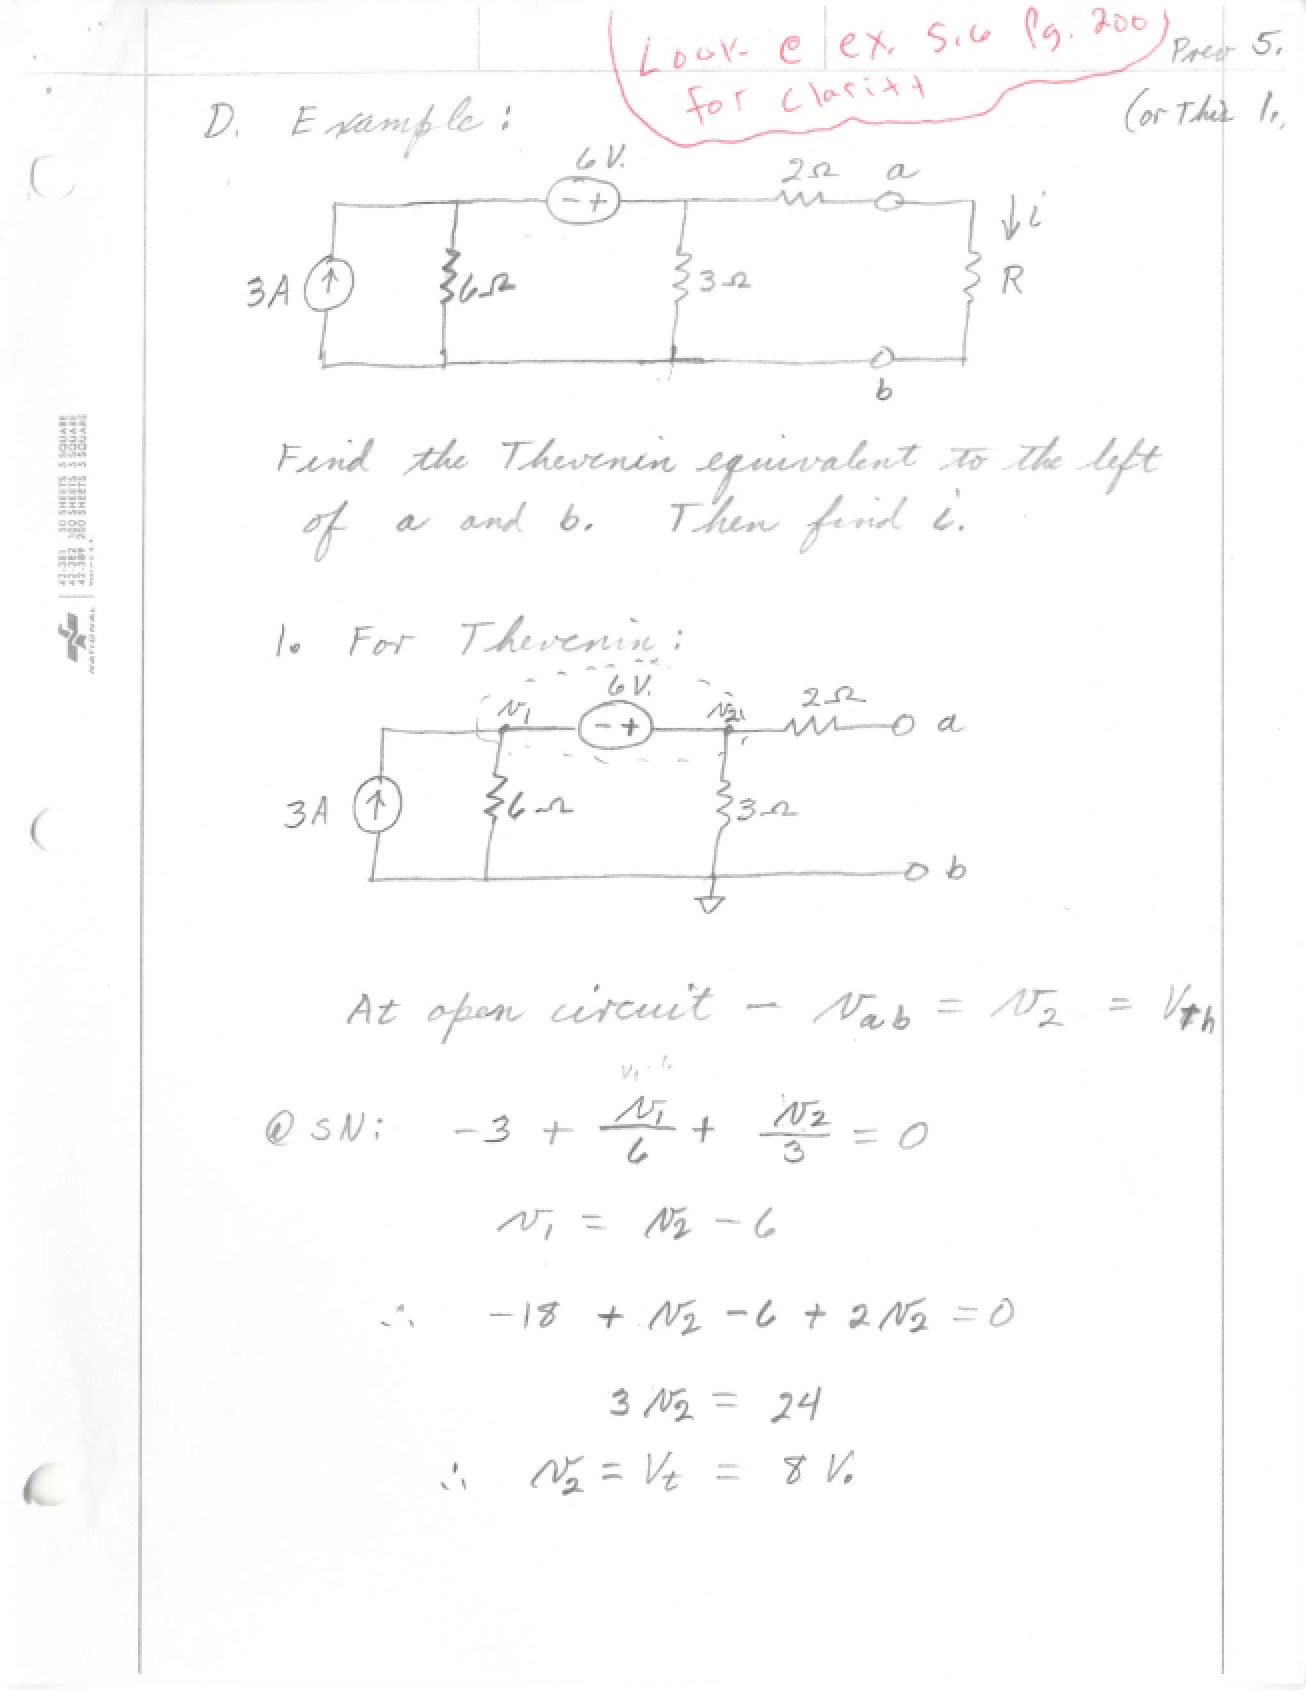 Look @ ex. 5.6 Pg. 200
for clarity
Prev 5.
(or This 1.
D. Example:
6 V.
2Ω a
i
3A 6Ω 3Ω R
b
Find the Thevenin equivalent to the left
of a and b. Then find i.
1. For Thevenin:
6 V.
v₁ v₂ 2Ω a
3A 6Ω 3Ω
b
At open circuit – v_ab = v₂ = V_th
@ SN: -3 + v₁/6 + v₂/3 = 0
v₁ = v₂ - 6
∴ -18 + v₂ - 6 + 2v₂ = 0
3v₂ = 24
∴ v₂ = V_t = 8 V.
42-381 50 SHEETS 5 SQUARE
42-382 100 SHEETS 5 SQUARE
42-389 200 SHEETS 5 SQUARE
NATIONAL